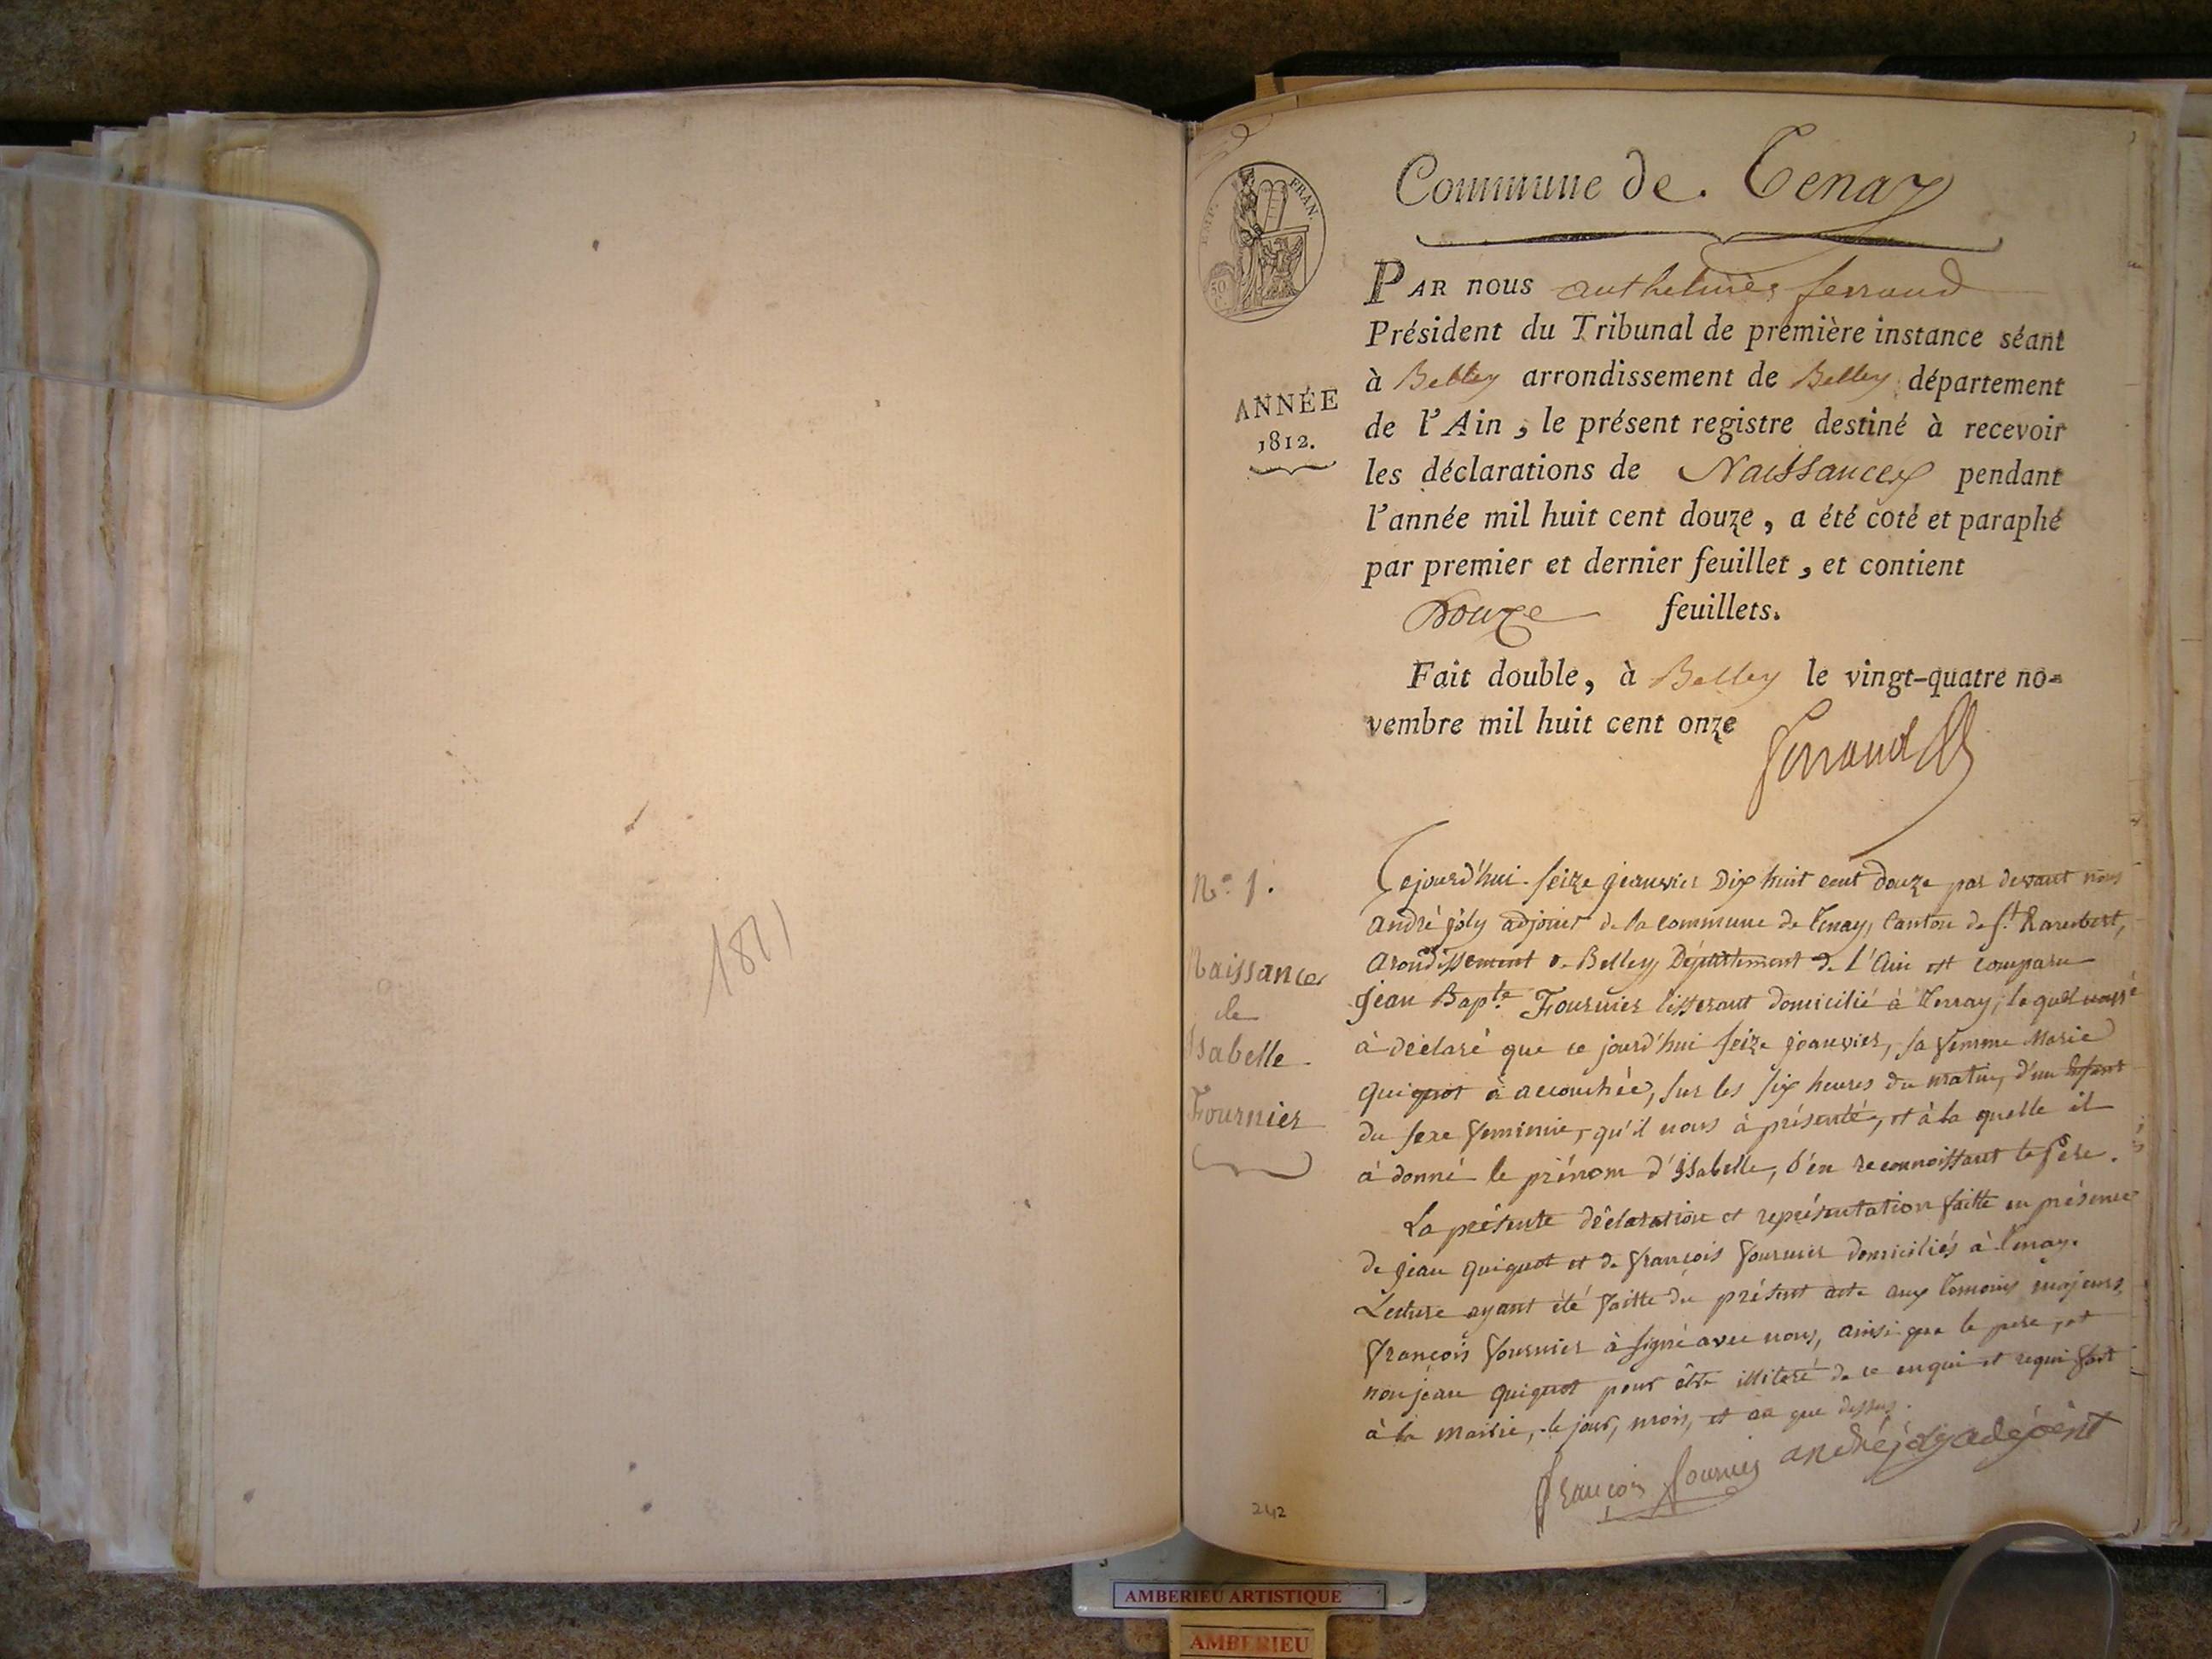 1811
EMP. FRAN.
50
Commune de. Tenay
PAR nous anthelme ferrand
Président du Tribunal de première instance séant
à Belley arrondissement de Belley département
ANNÉE
1812.
de l'Ain, le présent registre destiné à recevoir
les déclarations de Naissances pendant
l'année mil huit cent douze, a été coté et paraphé
par premier et dernier feuillet, et contient
Douze feuillets.
Fait double, à Belley le vingt-quatre no-
vembre mil huit cent onze
ferrand
N.° 1.
Naissances
de
Isabelle
Fournier
Cejourd'hui seize jeanvier Dix huit cent douze par devant nous
andré joly adjoint de la commune de tenay, Canton de St. Rambert,
arondissement de Belley Département de l'Ain est comparu
jean Bapte. Fournier tisserant domicilié à Tenay, le quel nous
à déclaré que ce jourd'hui seize jeanvier, sa femme Marie
quiquot à accouchée, sur les six heures du matin, d'un enfant
du sexe feminin, qu'il nous à présenté, et à la quelle il
à donné le prénom d'isabelle, s'en reconnoissant le Père.
La présente déclaration et représentation faitte en présence
de jean quiquot et de françois fournier domiciliés à tenay.
Lecture ayant été faitte du présent acte aux temoins majeurs,
françois fournier à signé avec nous, ainsi que le pere, et
non jean quiquot pour être illiteré de ce enqui et requi fait
à la Mairie, le jour, mois, et an que dessus.
françois fournier andré joly adejoent
242
AMBERIEU ARTISTIQUE
AMBERIEU